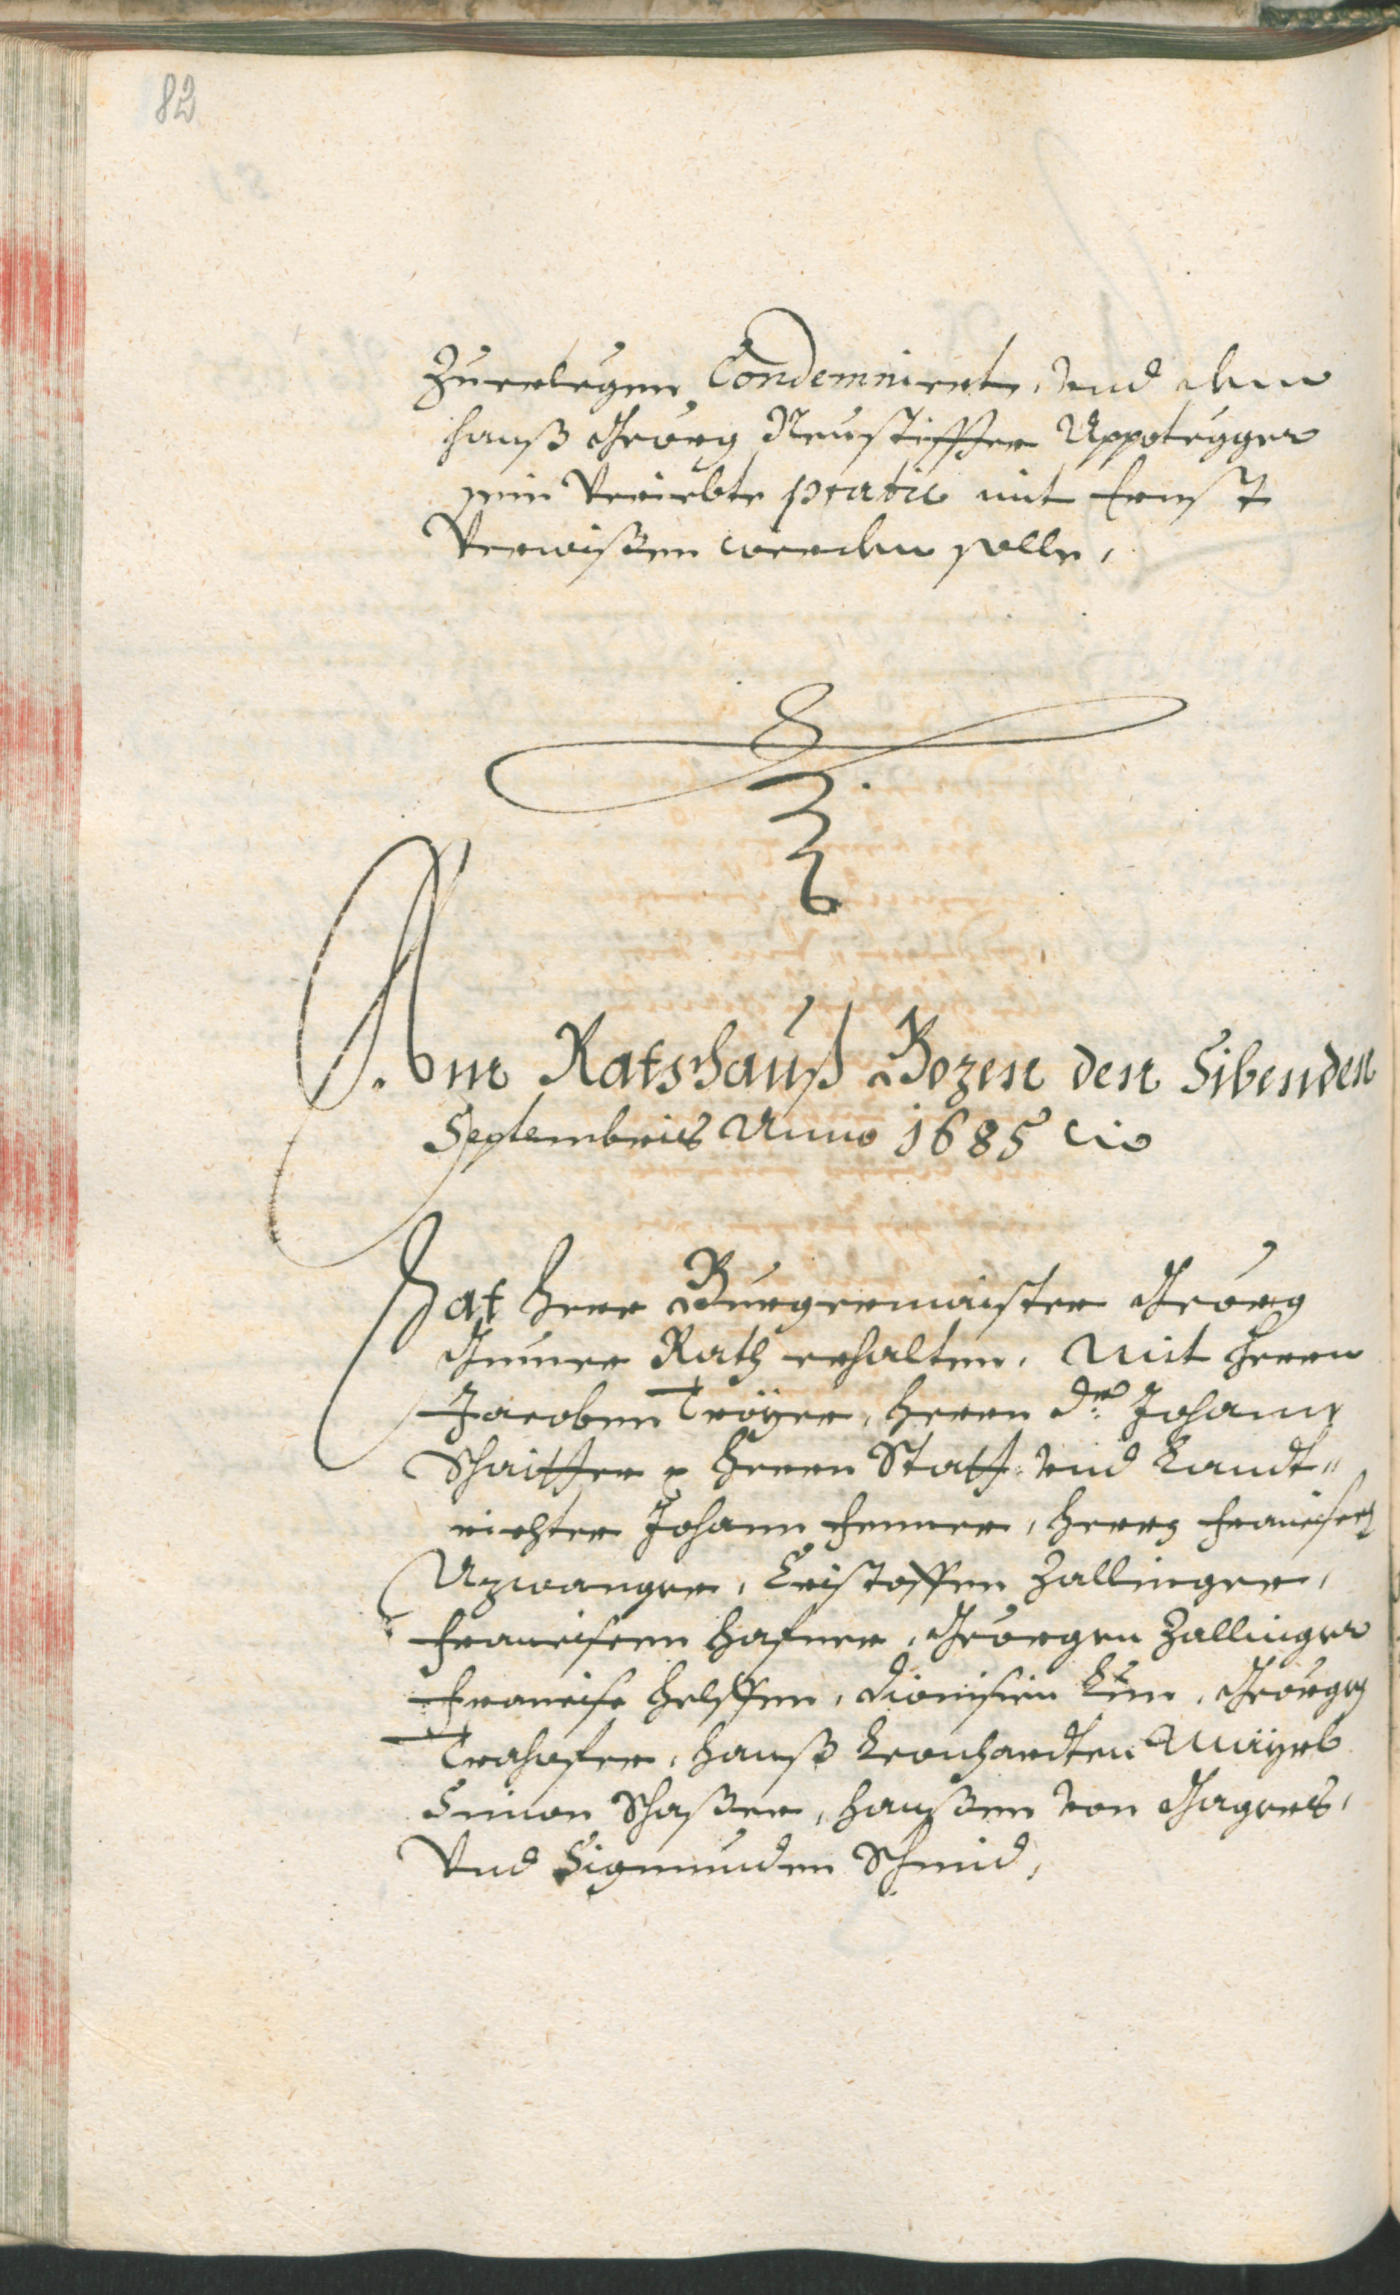 82
Zuerlegen Condemniert, und dem
Hanß Georg Neustiffter Appotegger
sein Veriebte pratic mit Ernst
Verwißen werden solle,
Am Ratshauß Bozen den Sibenden
Septembris Anno 1685
Hat Herr Burgermaister Georg
Gumer Rath erhalten, Mit Herrn
Jacoben Tröyer, Herrn Dr. Johann
Herrn Statt und Landt„
richter Johann Fenner, Herrn Francisen
Azwanger, Cristoffen Zallinger,
Francisen Hafner, Georgen Zallinger
Francise Helffen, Dionisien Georgen
Trahofer, Hanß Leonhardten Mayrl
Simon Schaßer, Hanßen von
Und Sigmunden Schmid,